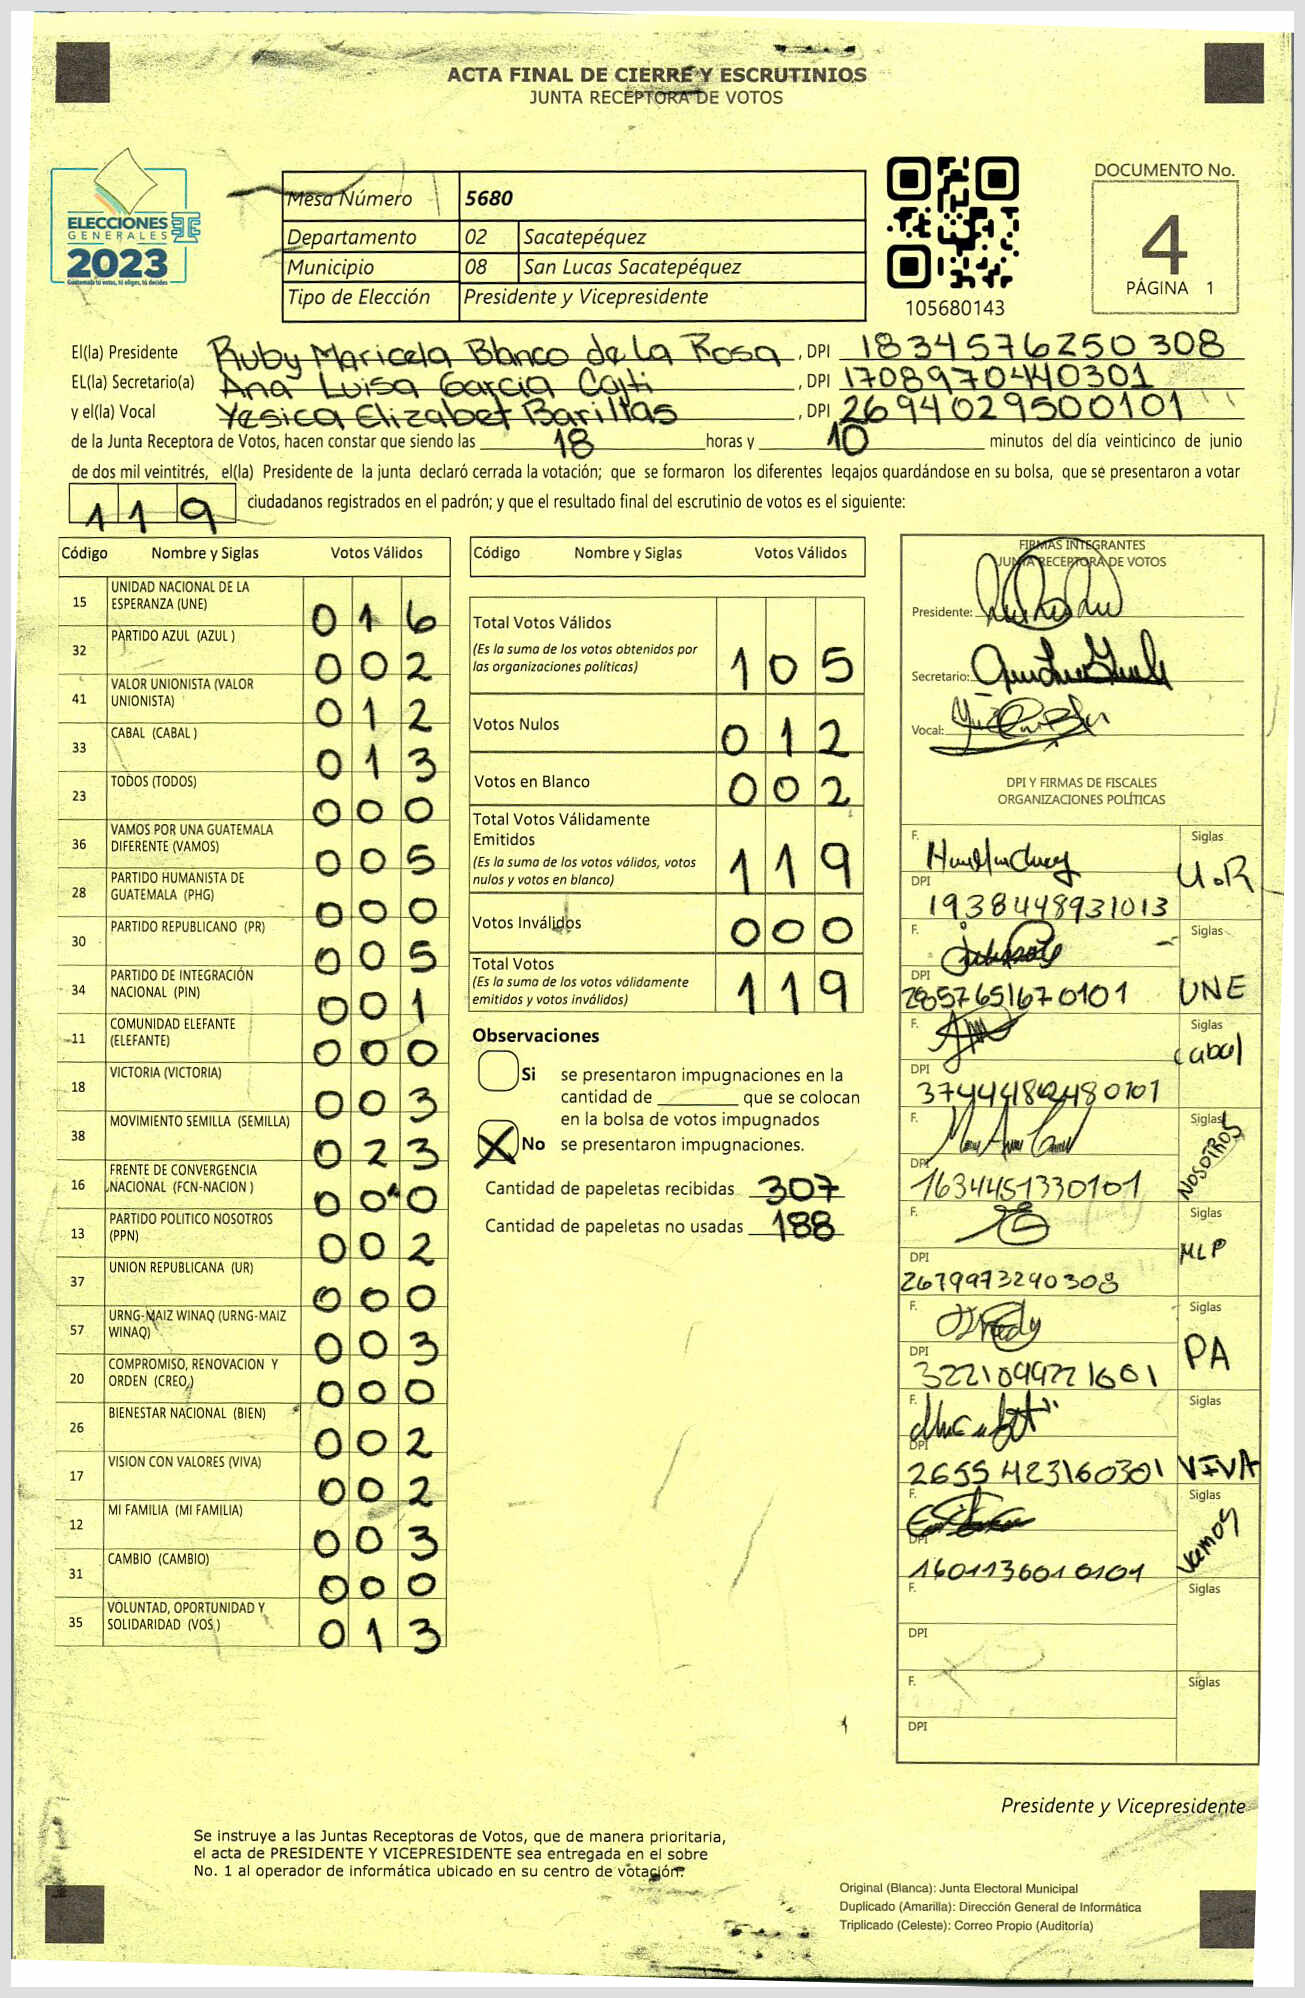 ACTA FINAL DE CIERRE Y ESCRUTINIOS
JUNTA RECEPTORA DE VOTOS
ELECCIONES
GENERALES
2023
Guatemala tú votas, tú eliges, tú decides
Mesa Número 5680
Departamento 02 Sacatepéquez
Municipio 08 San Lucas Sacatepéquez
Tipo de Elección Presidente y Vicepresidente
105680143
DOCUMENTO No.
4
PÁGINA 1
El(la) Presidente Ruby Maricela Blanco de La Rosa, DPI 1834576250308
EL(la) Secretario(a) Ana Luisa Garcia Cojti, DPI 1708970440301
y el(la) Vocal Yesica Elizabet Barillas, DPI 2694029500101
de la Junta Receptora de Votos, hacen constar que siendo las 18 horas y 10 minutos del día veinticinco de junio
de dos mil veintitrés, el(la) Presidente de la junta declaró cerrada la votación; que se formaron los diferentes legajos guardándose en su bolsa, que se presentaron a votar
119 ciudadanos registrados en el padrón; y que el resultado final del escrutinio de votos es el siguiente:
Código Nombre y Siglas Votos Válidos
15 UNIDAD NACIONAL DE LA ESPERANZA (UNE) 016
32 PARTIDO AZUL (AZUL ) 002
41 VALOR UNIONISTA (VALOR UNIONISTA) 012
33 CABAL (CABAL ) 013
23 TODOS (TODOS) 000
36 VAMOS POR UNA GUATEMALA DIFERENTE (VAMOS) 005
28 PARTIDO HUMANISTA DE GUATEMALA (PHG) 000
30 PARTIDO REPUBLICANO (PR) 005
34 PARTIDO DE INTEGRACIÓN NACIONAL (PIN) 001
11 COMUNIDAD ELEFANTE (ELEFANTE) 000
18 VICTORIA (VICTORIA) 003
38 MOVIMIENTO SEMILLA (SEMILLA) 023
16 FRENTE DE CONVERGENCIA NACIONAL (FCN-NACION ) 000
13 PARTIDO POLITICO NOSOTROS (PPN) 002
37 UNION REPUBLICANA (UR) 000
57 URNG-MAIZ WINAQ (URNG-MAIZ WINAQ) 003
20 COMPROMISO, RENOVACION Y ORDEN (CREO ) 000
26 BIENESTAR NACIONAL (BIEN) 002
17 VISION CON VALORES (VIVA) 002
12 MI FAMILIA (MI FAMILIA) 003
31 CAMBIO (CAMBIO) 000
35 VOLUNTAD, OPORTUNIDAD Y SOLIDARIDAD (VOS ) 013
Código Nombre y Siglas Votos Válidos
Total Votos Válidos 105
(Es la suma de los votos obtenidos por
las organizaciones políticas)
Votos Nulos 012
Votos en Blanco 002
Total Votos Válidamente
Emitidos 119
(Es la suma de los votos válidos, votos
nulos y votos en blanco)
Votos Inválidos 000
Total Votos 119
(Es la suma de los votos válidamente
emitidos y votos inválidos)
Observaciones
Si se presentaron impugnaciones en la
cantidad de ________ que se colocan
en la bolsa de votos impugnados
X No se presentaron impugnaciones.
Cantidad de papeletas recibidas 307
Cantidad de papeletas no usadas 188
FIRMAS INTEGRANTES
JUNTA RECEPTORA DE VOTOS
Presidente:
Secretario:
Vocal:
DPI Y FIRMAS DE FISCALES
ORGANIZACIONES POLÍTICAS
F. Siglas U.R
DPI 1938448931013
F. Siglas UNE
DPI 2857651670101
F. Siglas Cabal
DPI
F. Siglas NOSOTROS
DPI 1634451330101
F. Siglas MLP
DPI 2679973290308
F. Siglas PA
DPI 3221099221601
F. Siglas VIVA
DPI 2655423160301
F. Siglas Vamos
DPI 1601136010101
F. Siglas
DPI
F. Siglas
DPI
Presidente y Vicepresidente
Se instruye a las Juntas Receptoras de Votos, que de manera prioritaria,
el acta de PRESIDENTE Y VICEPRESIDENTE sea entregada en el sobre
No. 1 al operador de informática ubicado en su centro de votación.
Original (Blanca): Junta Electoral Municipal
Duplicado (Amarilla): Dirección General de Informática
Triplicado (Celeste): Correo Propio (Auditoría)